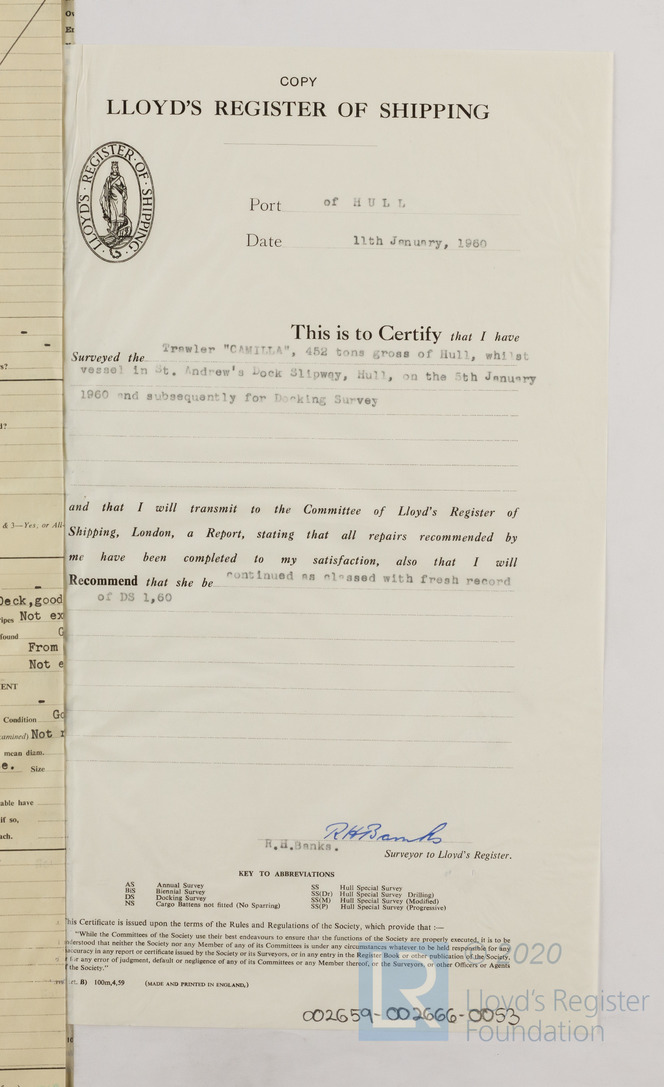 COPY
LLOYD'S REGISTER OF SHIPPING
LLOYD'S · REGISTER · OF · SHIPPING
Port of HULL
Date 11th January, 1960
This is to Certify that I have
Surveyed the Trawler "CAMILLA", 452 tons gross of Hull, whilst
vessel in St. Andrew's Dock Slipway, Hull, on the 5th January
1960 and subsequently for Docking Survey
and that I will transmit to the Committee of Lloyd's Register of
Shipping, London, a Report, stating that all repairs recommended by
me have been completed to my satisfaction, also that I will
Recommend that she be continued as classed with fresh record
of DS 1,60
RHBanks
R.H.Banks.
Surveyor to Lloyd's Register.
KEY TO ABBREVIATIONS
AS Annual Survey
BiS Biennial Survey
DS Docking Survey
NS Cargo Battens not fitted (No Sparring)
SS Hull Special Survey
SS(Dr) Hull Special Survey Drilling)
SS(M) Hull Special Survey (Modified)
SS(P) Hull Special Survey (Progressive)
his Certificate is issued upon the terms of the Rules and Regulations of the Society, which provide that :—
"While the Committees of the Society use their best endeavours to ensure that the functions of the Society are properly executed, it is to be
nderstood that neither the Society nor any Member of any of its Committees is under any circumstances whatever to be held responsible for any
accuracy in any report or certificate issued by the Society or its Surveyors, or in any entry in the Register Book or other publication of the Society,
r for any error of judgment, default or negligence of any of its Committees or any Member thereof, or the Surveyors, or other Officers or Agents
f the Society."
rt. B) 100m,4,59 (MADE AND PRINTED IN ENGLAND.)
002659-002666-0053
2020
LR
Lloyd's Register
Foundation
s?
d?
& 3—Yes, or All
Deck,good
ipes Not ex
found G
From
Not e
ENT
Condition Go
amined) Not r
mean diam.
e. Size
able have
if so,
ach.